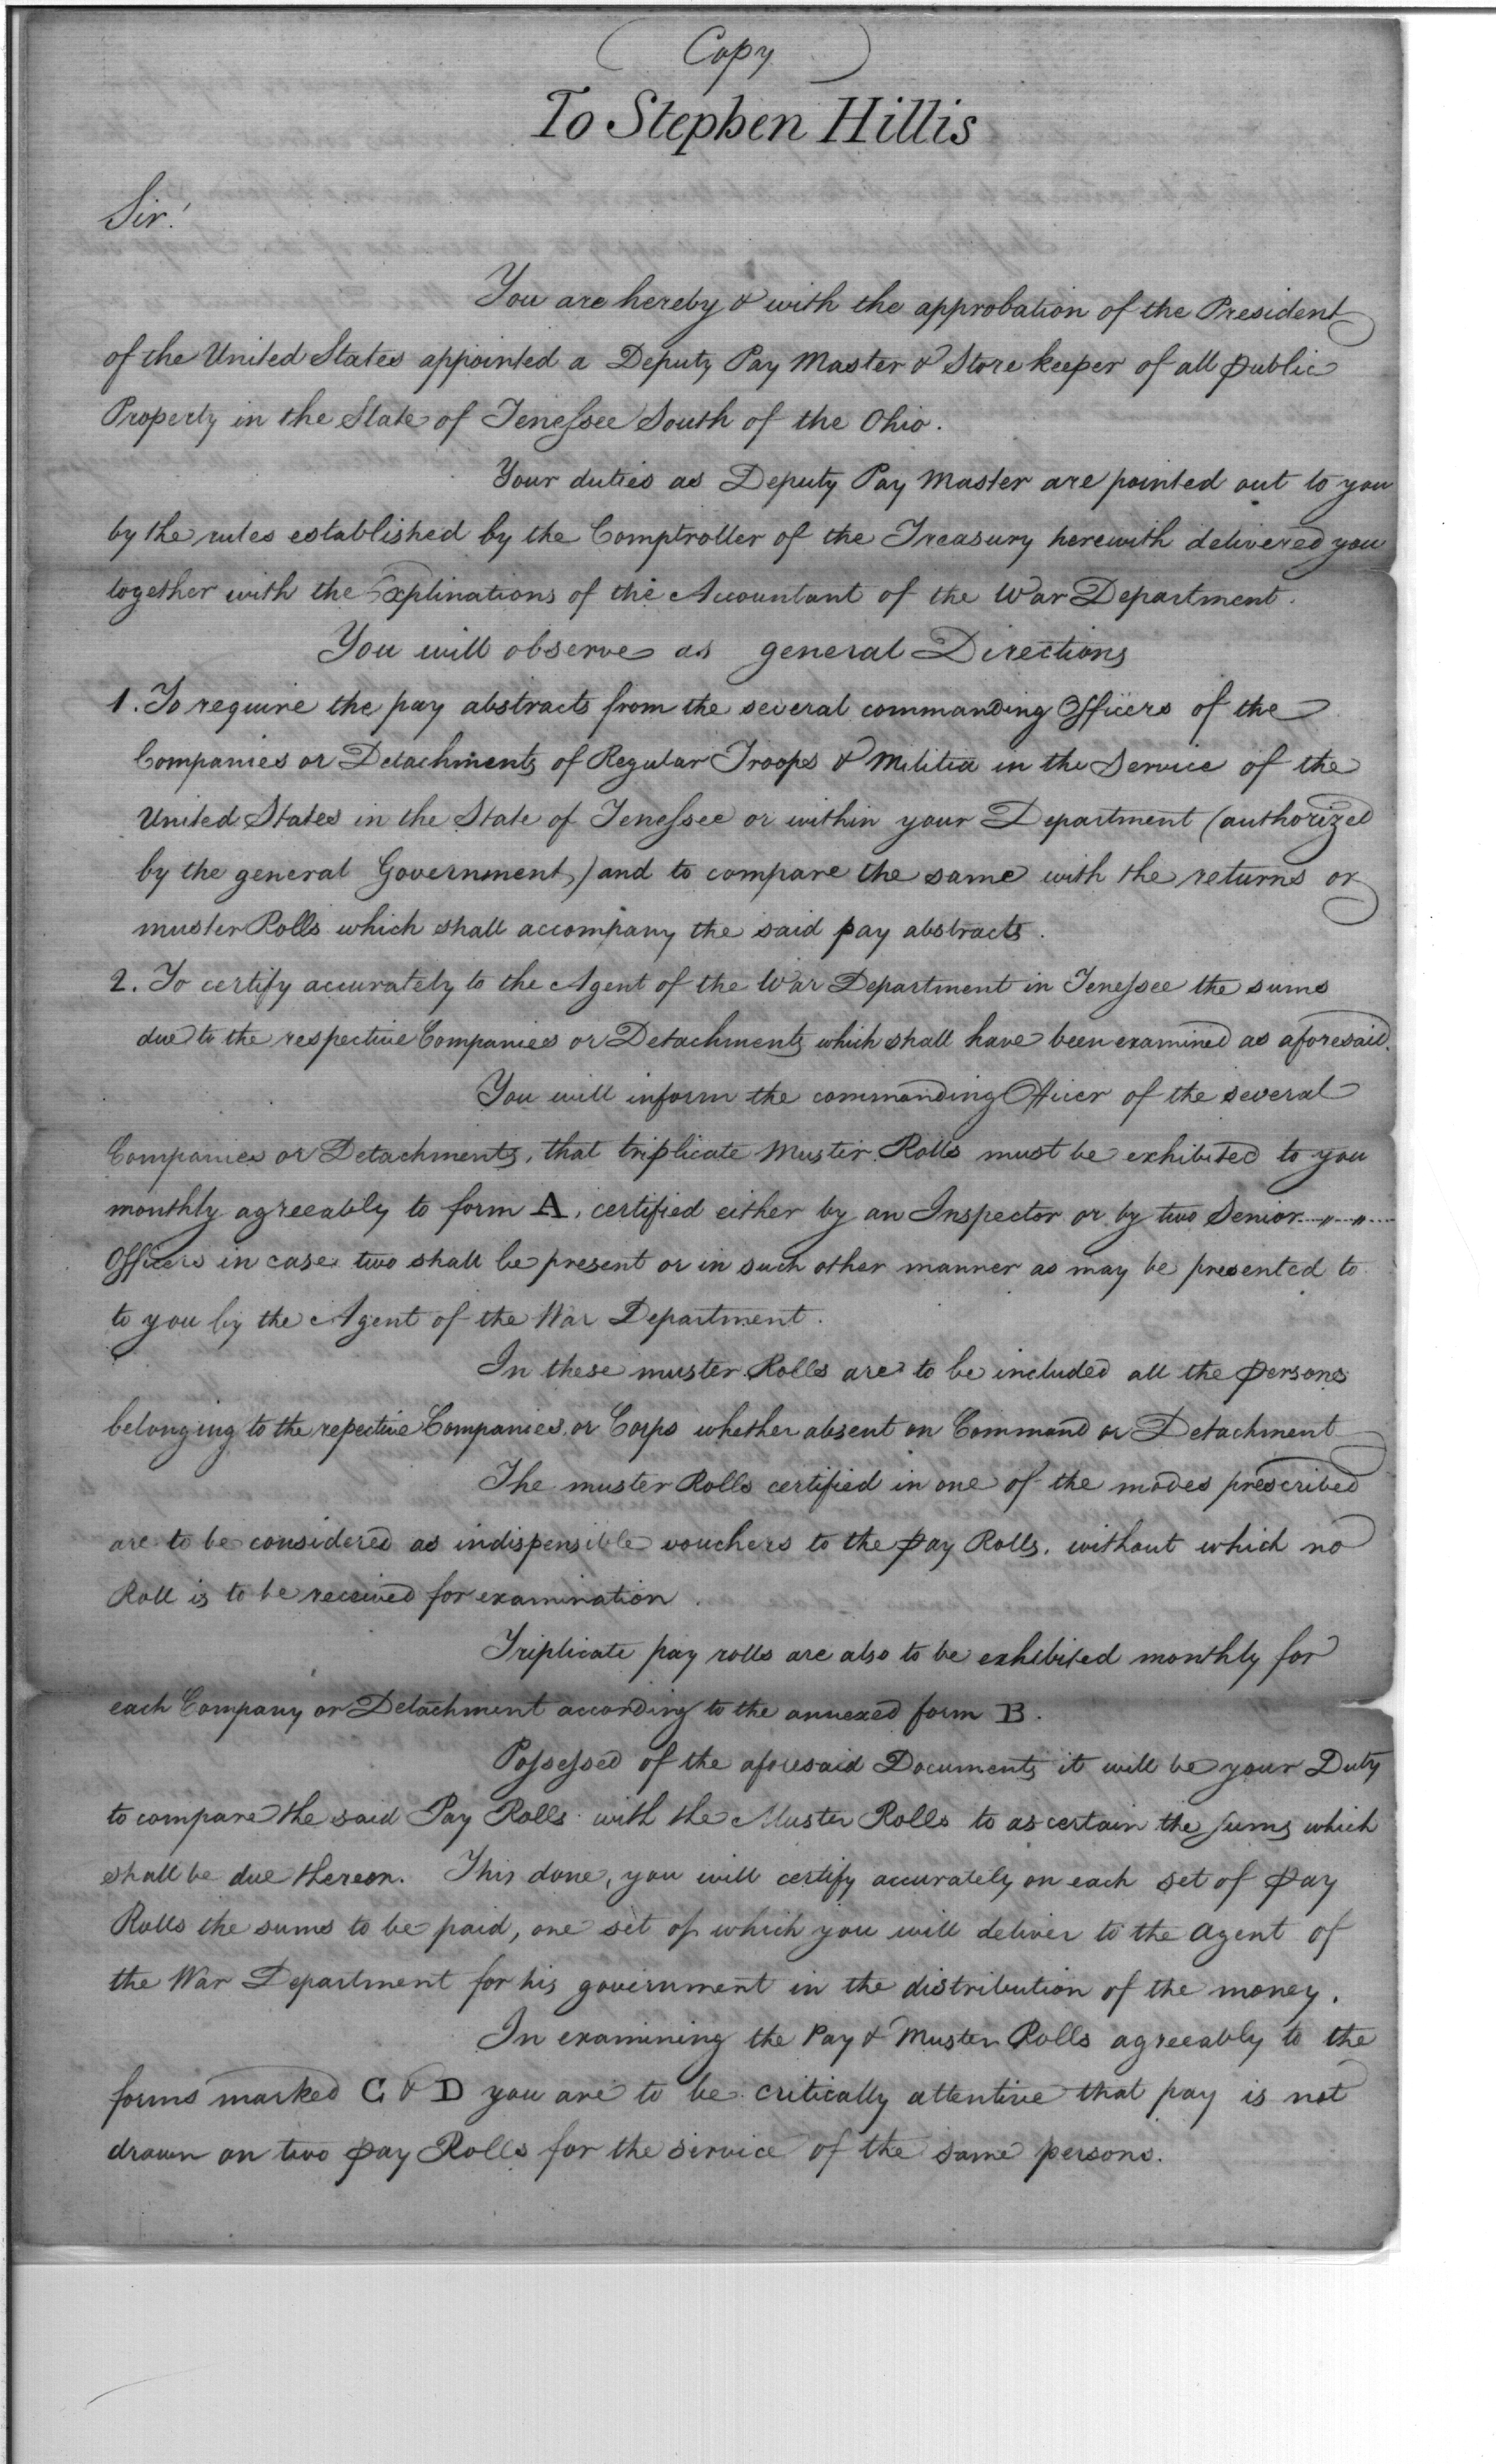 (Copy)
To Stephen Hillis
Sir!
You are hereby & with the approbation of the President
of the United States appointed a Deputy Pay Master & Storekeeper of all public
Property in the State of Tenessee South of the Ohio.
Your duties as Deputy Pay Master are pointed out to you
by the rules established by the Comptroller of the Treasury herewith delivered you
together with the Explinations of the Accountant of the War Department.
You will observe as general Directions
1. To require the pay abstracts from the several commanding Officers of the
Companies or Detachments of Regular Troops & Militia in the Service of the
United States in the State of Tenessee or within your Department (authorized
by the general Government) and to compare the same with the returns or
muster Rolls which shall accompany the said pay abstracts.
2. To certify accurately to the Agent of the War Department in Tenessee the sums
due to the respective Companies or Detachments which shall have been examined as aforesaid.
You will inform the commanding Officer of the several
Companies or Detachments, that triplicate Muster Rolls must be exhibited to you
monthly agreeably to form A, certified either by an Inspector or by two Senior
Officers in case two shall be present or in such other manner as may be presented to
to you by the Agent of the War Department.
In these muster Rolls are to be included all the persons
belonging to the repective Companies or Corps whether absent on Command or Detachment
The muster Rolls certified in one of the modes prescribed
are to be considered as indispensible vouchers to the pay Rolls, without which no
Roll is to be received for examination.
Triplicate pay rolls are also to be exhibited monthly for
each Company or Detachment according to the annexed form B.
Possessed of the aforesaid Documents it will be your Duty
to compare the said Pay Rolls with the Muster Rolls to ascertain the sums which
shall be due thereon. This done, you will certify accurately on each set of pay
Rolls the sums to be paid, one set of which you will deliver to the agent of
the War Department for his government in the distribution of the money.
In examining the Pay & Muster Rolls agreeably to the
forms marked C & D you are to be critically attentive that pay is not
drawn on two pay Rolls for the service of the same persons.